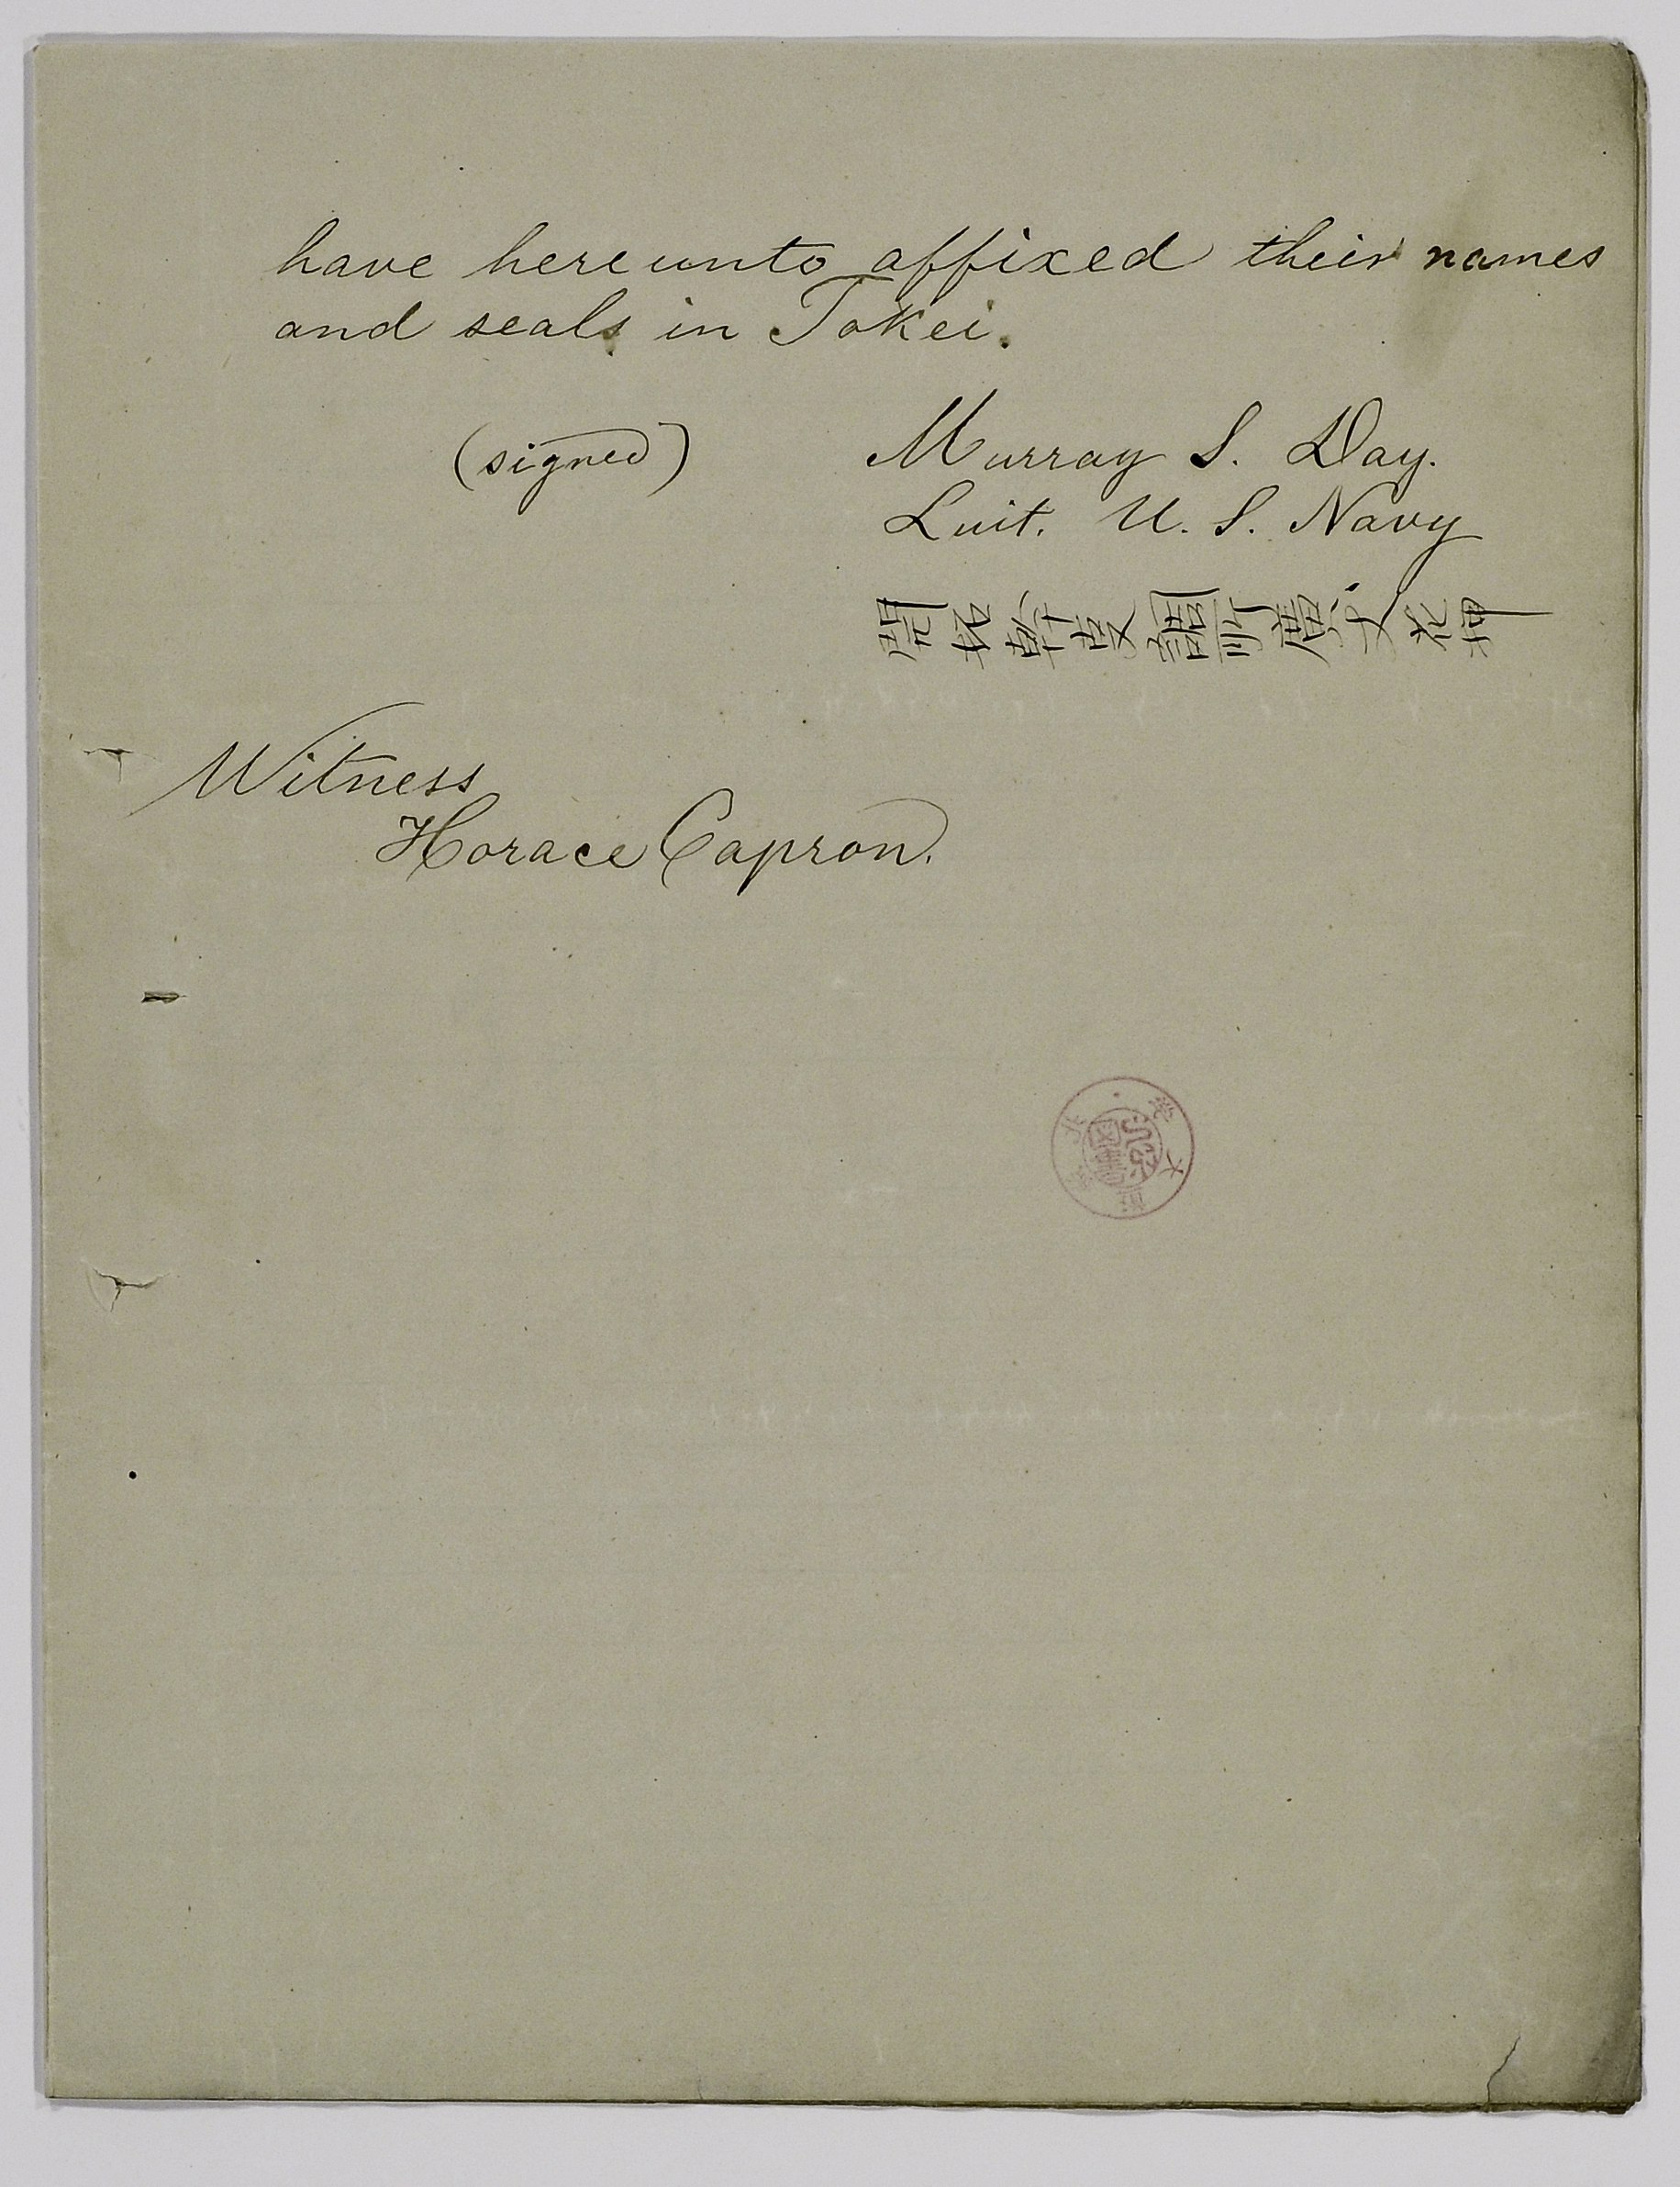 have hereunto affixed their names
and seals in Tokei.
(signed) Murray S. Day.
Luit. U. S. Navy
開拓幹叓調所廣丈花押
Witness
Horace Capron.